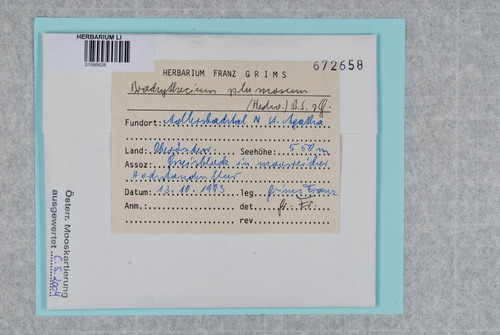 HERBARIUM LI
01595628
672658
HERBARIUM FRANZ GRIMS
Brachythecium plumosum
(Hedw.) B.S. & G.
Fundort: N St. Agatha
Land: Oberösterr. Seehöhe: 550 m
Assoz: Gneisblock in moosreicher
Hochstaudenflur
Datum: 13.10.1983 leg. Grims Franz
Anm.: det Gr. Fr.
rev.
Österr. Mooskartierung
ausgewertet C.S. 2004